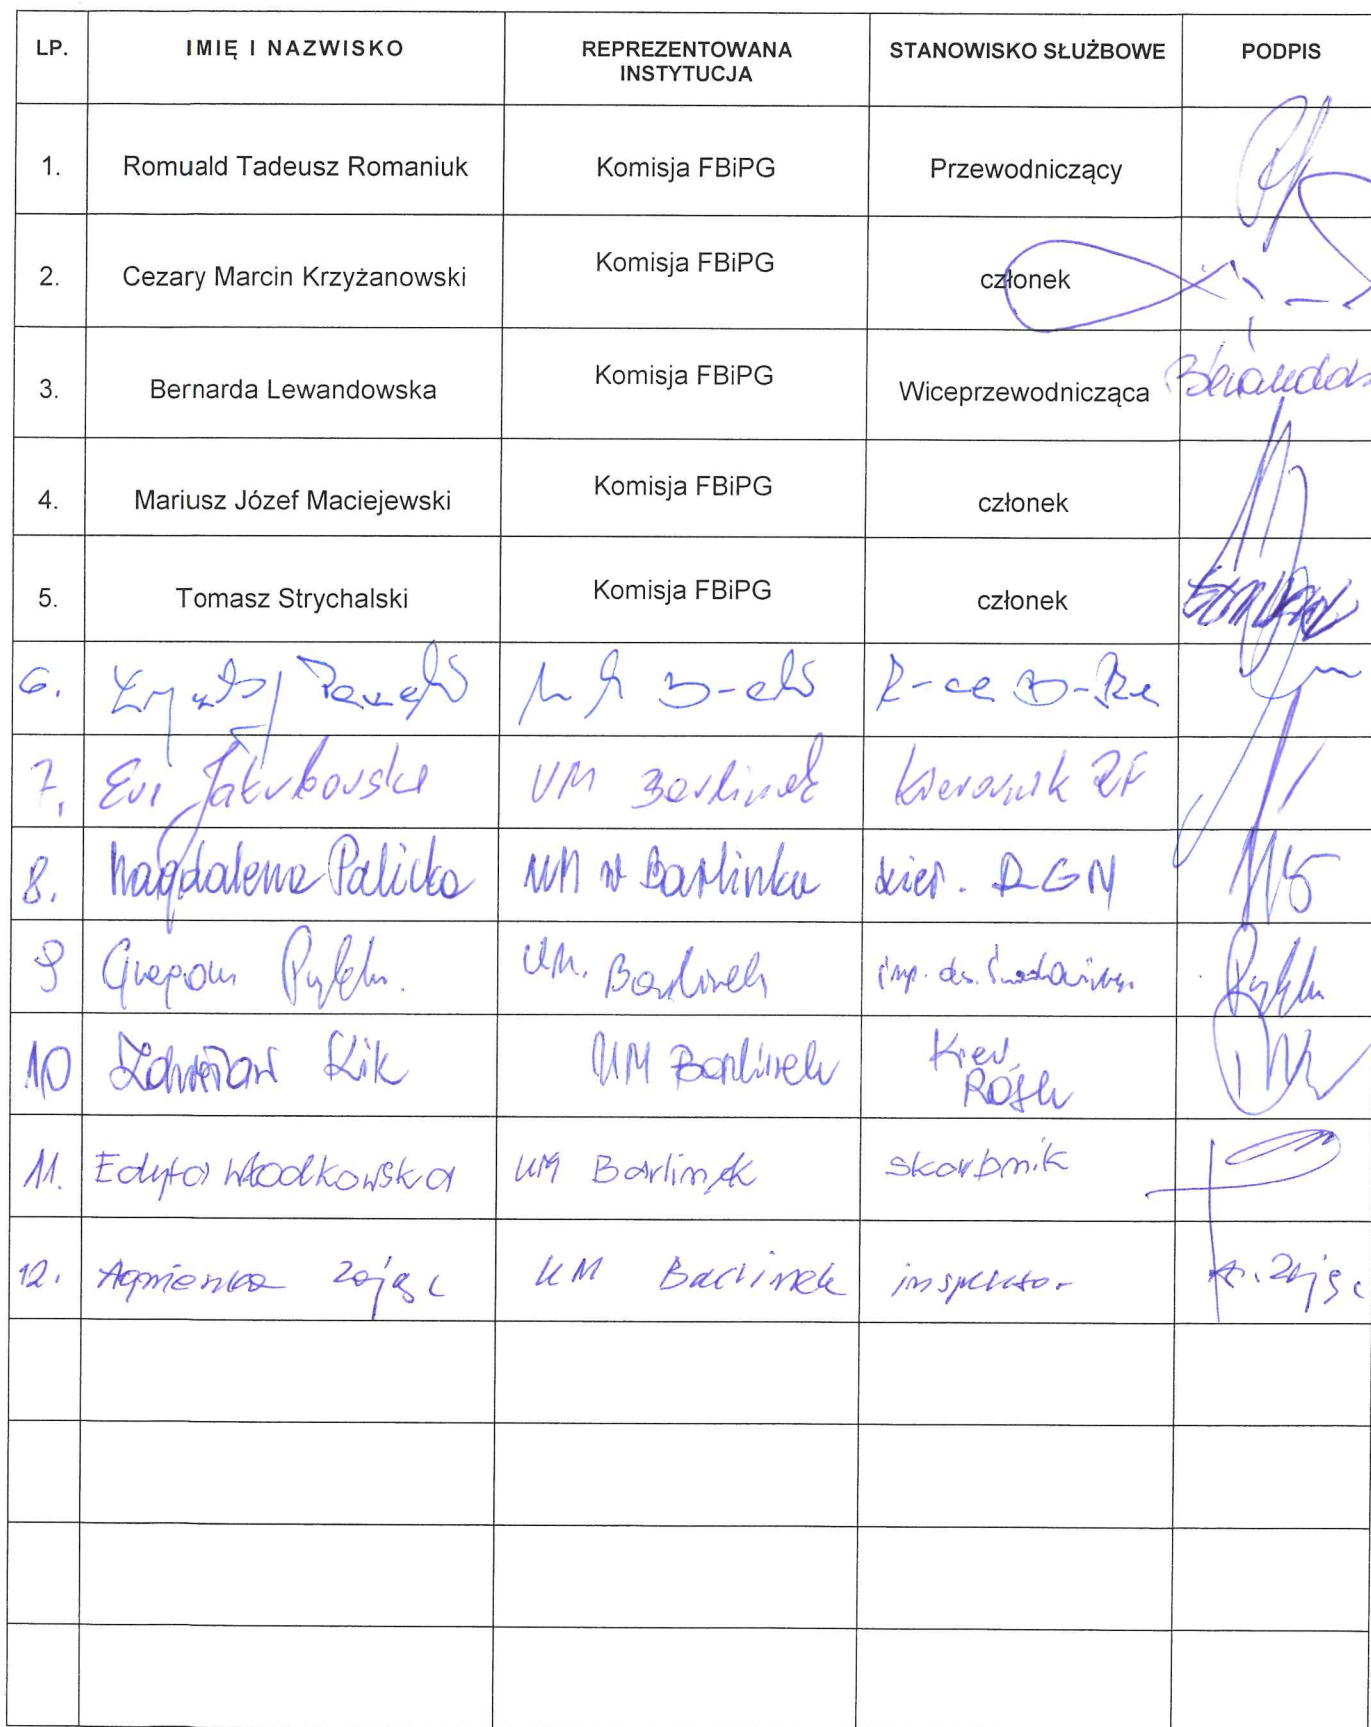 LP. IMIĘ I NAZWISKO REPREZENTOWANA INSTYTUCJA STANOWISKO SŁUŻBOWE PODPIS
1. Romuald Tadeusz Romaniuk Komisja FBiPG Przewodniczący
2. Cezary Marcin Krzyżanowski Komisja FBiPG członek
3. Bernarda Lewandowska Komisja FBiPG Wiceprzewodnicząca
4. Mariusz Józef Maciejewski Komisja FBiPG członek
5. Tomasz Strychalski Komisja FBiPG członek
6.
7. Ewa Jakubowska UM Barlinek Kierownik RF
8. Magdalena Palicka UM w Barlinku kier. RGN
9 UM. Barlinek
10 UM Barlinek Kier.
11. Edyta Włodkowska UM Barlinek skarbnik
12. Agnieszka Zając UM Barlinek inspektor A. Zając